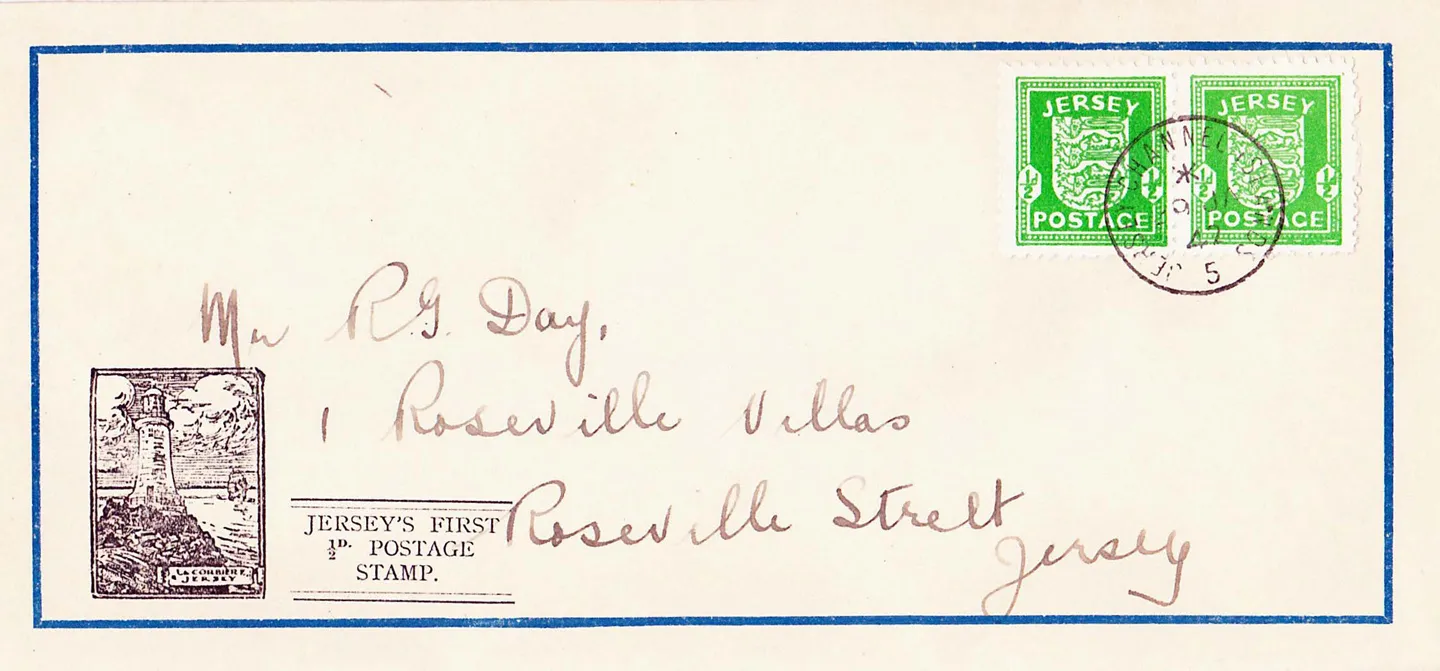 JERSEY JERSEY
½ᴰ ½ᴰ ½ᴰ ½ᴰ
POSTAGE POSTAGE
JERSEY CHANNEL ISLANDS
42
5
Mr R.G. Day,
1 Roseville Villas
Roseville Street
Jersey
LA CORBIERE
JERSEY
JERSEY'S FIRST
½ᴰ· POSTAGE
STAMP.